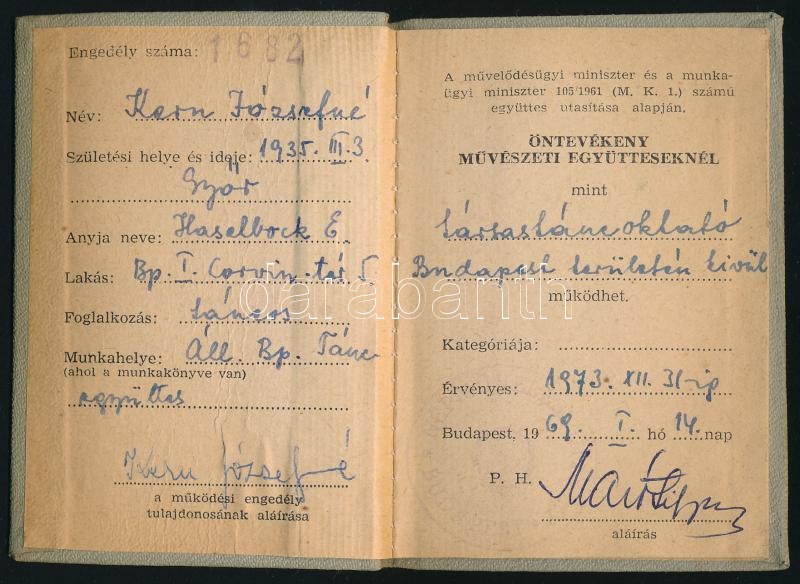 Engedély száma: 1682
Név: Kern Józsefné
Születési helye és ideje: 1935. III. 3.
Győr
Anyja neve: Haselbock E.
Lakás: Bp. I. Corvin tér 5
Foglalkozás: táncos
Munkahelye: Áll. Bp. Tánc
(ahol a munkakönyve van)
együttes
Kern Józsefné
a működési engedély
tulajdonosának aláírása
A művelődésügyi miniszter és a munka-
ügyi miniszter 105/1961 (M. K. 1.) számú
együttes utasítása alapján.
ÖNTEVÉKENY
MŰVÉSZETI EGYÜTTESEKNÉL
mint
társastáncoktató
Budapest területén kivül
működhet.
darabanth
Kategóriája:
Érvényes: 1973. XII. 31-ig
Budapest, 1969. I. hó 14. nap
P. H.
aláírás